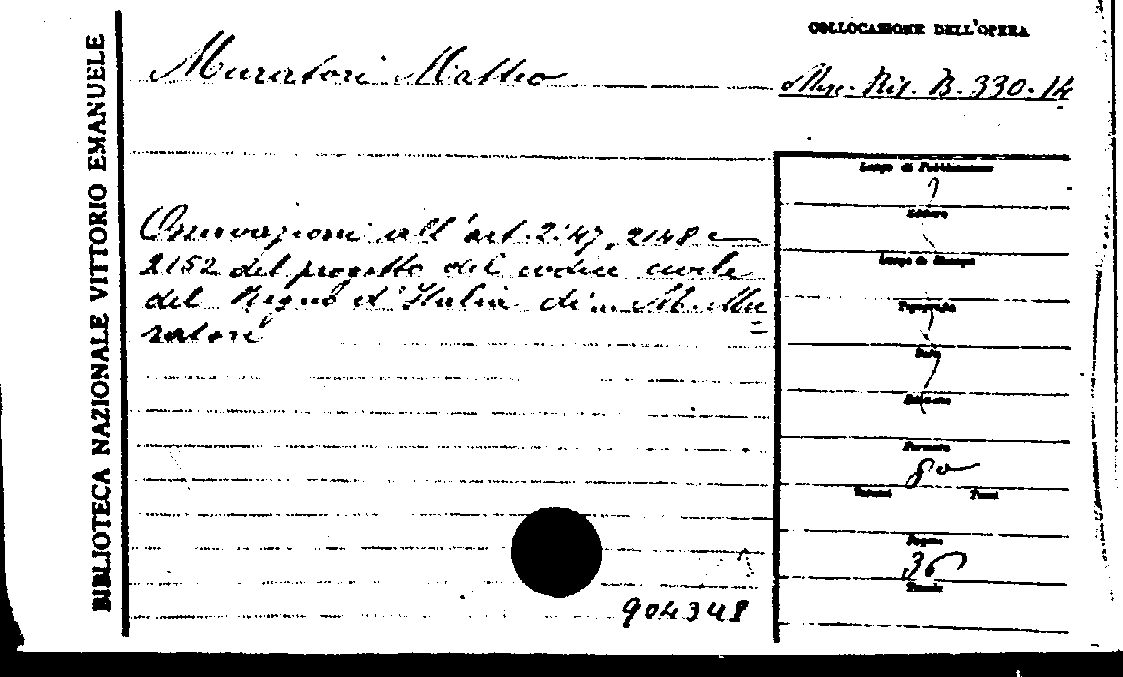 BIBLIOTECA NAZIONALE VITTORIO EMANUELE
COLLOCAZIONE DELL'OPERA
Muratori Matteo
Misc. Ris. B. 330. 14
Osservazioni all'art. 2147, 2148 e
2152 del progetto del codice civile
del Regno d'Italia di... M. Mu
ratori
Luogo di Pubblicazione
Editore
Luogo di Stampa
Tipografia
Data
Edizione
Formato
8o
Volumi Tomi
Pagine
36
Tavole
904348